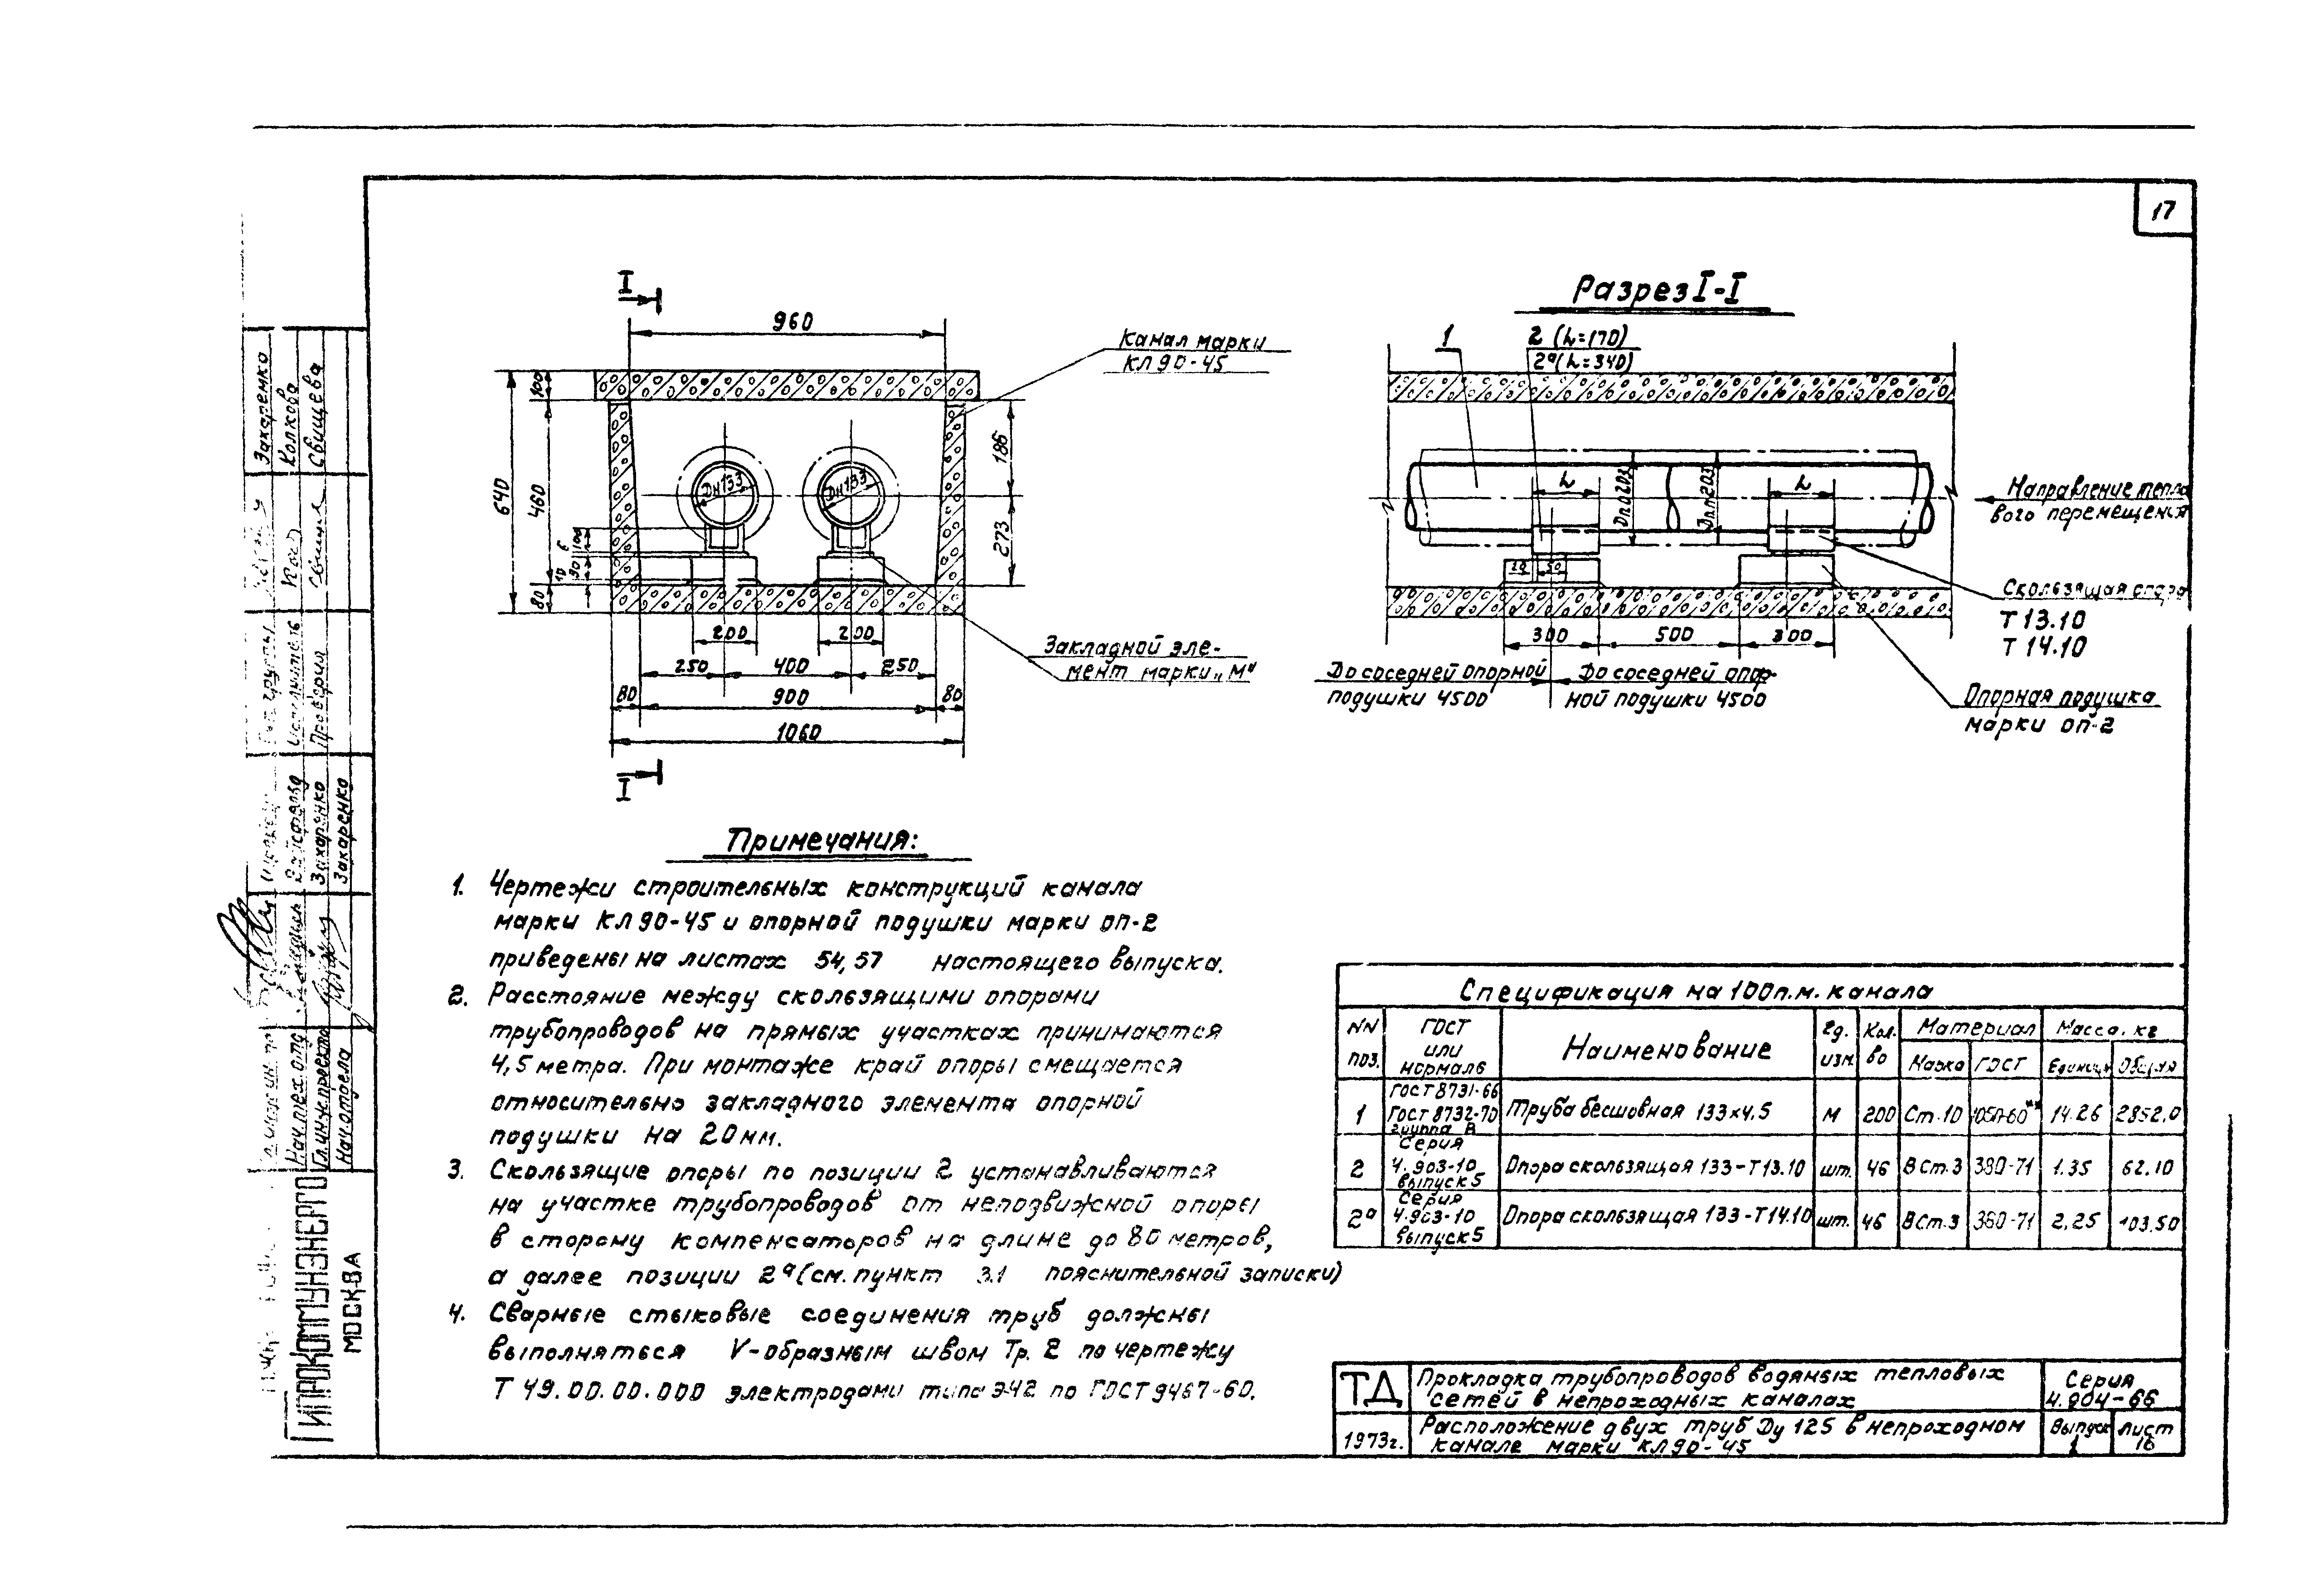 17
I
960
Канал марки
КЛ90-45
100
640
460
186
273
Dн133
Dн133
6
100
90
10
80
200
200
250
400
250
80
900
80
1060
I
Закладной эле-
мент марки „М"
Разрез I-I
1
2 (L=170)
2а (L=340)
L
L
Dп.п203
Dп.п203
Направление тепло
вого перемещения
20
50
Скользящая опора
Т 13.10
Т 14.10
300
500
300
До соседней опорной
подушки 4500
До соседней опор-
ной подушки 4500
Опорная подушка
марки ОП-2
Примечания:
1. Чертежи строительных конструкций канала
марки КЛ90-45 и опорной подушки марки ОП-2
приведены на листах 54,57 настоящего выпуска.
2. Расстояние между скользящими опорами
трубопроводов на прямых участках принимаются
4,5 метра. При монтаже край опоры смещается
относительно закладного элемента опорной
подушки на 20мм.
3. Скользящие опоры по позиции 2 устанавливаются
на участке трубопроводов от неподвижной опоры
в сторону компенсаторов на длине до 80 метров,
а далее позиции 2а (см. пункт 3.1 пояснительной записки)
4. Сварные стыковые соединения труб должны
выполняться V-образным швом Тр. 2 по чертежу
Т 49.00.00.000 электродами типа Э42 по ГОСТ 9467-60.
Спецификация на 100п.м. канала
NN поз. | ГОСТ или нормаль | Наименование | Ед. изм. | Кол. во | Материал | Масса, кг
Марка | ГОСТ | Единицы | Общая
1 | ГОСТ 8731-66 ГОСТ 8732-70 группа В | Труба бесшовная 133х4,5 | м | 200 | Ст.10 | 1050-60** | 14.26 | 2852.0
2 | Серия 4.903-10 выпуск 5 | Опора скользящая 133-Т13.10 | шт. | 46 | ВСт.3 | 380-71 | 1.35 | 62.10
2а | Серия 4.903-10 выпуск 5 | Опора скользящая 133-Т14.10 | шт. | 46 | ВСт.3 | 380-71 | 2.25 | 103.50
ТД
Прокладка трубопроводов водяных тепловых
сетей в непроходных каналах
Серия
4.904-66
1973г.
Расположение двух труб Ду 125 в непроходном
канале марки КЛ90-45
Выпуск
1
Лист
16
Захаренко
Колкова
Свищева
Исполнитель
Проверил
Захаренко
Захаренко
Нач.тех.отд.
Гл.инж.проекта
Нач.отдела
ГИПРОКОММУНЭНЕРГО
МОСКВА